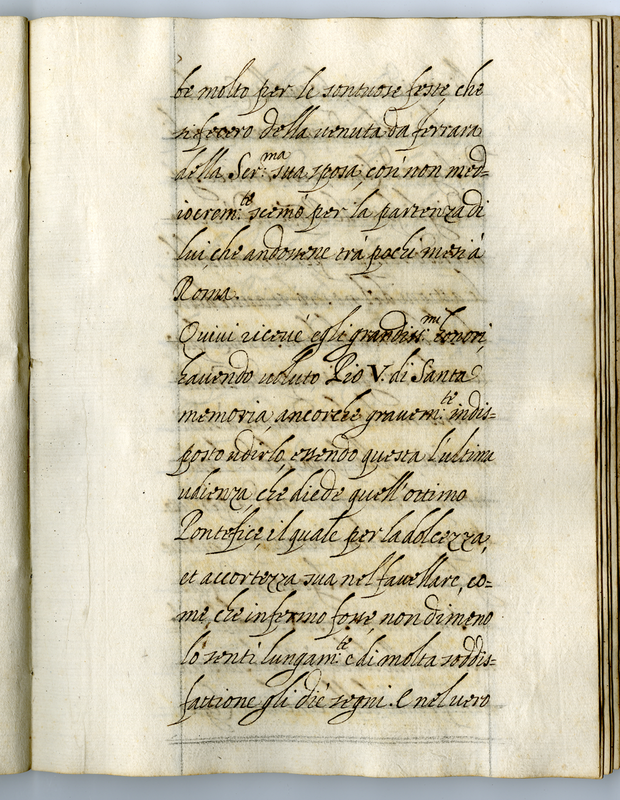 be molto per le sontuose feste che
si fecero della venuta da ferrara
della Ser:ma sua sposa, con non med=
iocrem:te scemò per la partenza di
lui che andossene trà pochi mesi à
Roma.
Quivi riceuè egli grandiss:mi honori,
havendo voluto Pio V. di Santa
memoria, ancorche gravem:te indis=
posto udirlo essendo questa l'ultima
udienza, che diede quell'ottimo
Pontefice il quale per la dolcezza,
et accortezza sua nel favellare, co=
me, che infermo fosse, non dimeno
lo senti lungam:te e di molta soddis=
fattione gli diè segni. E nel vero